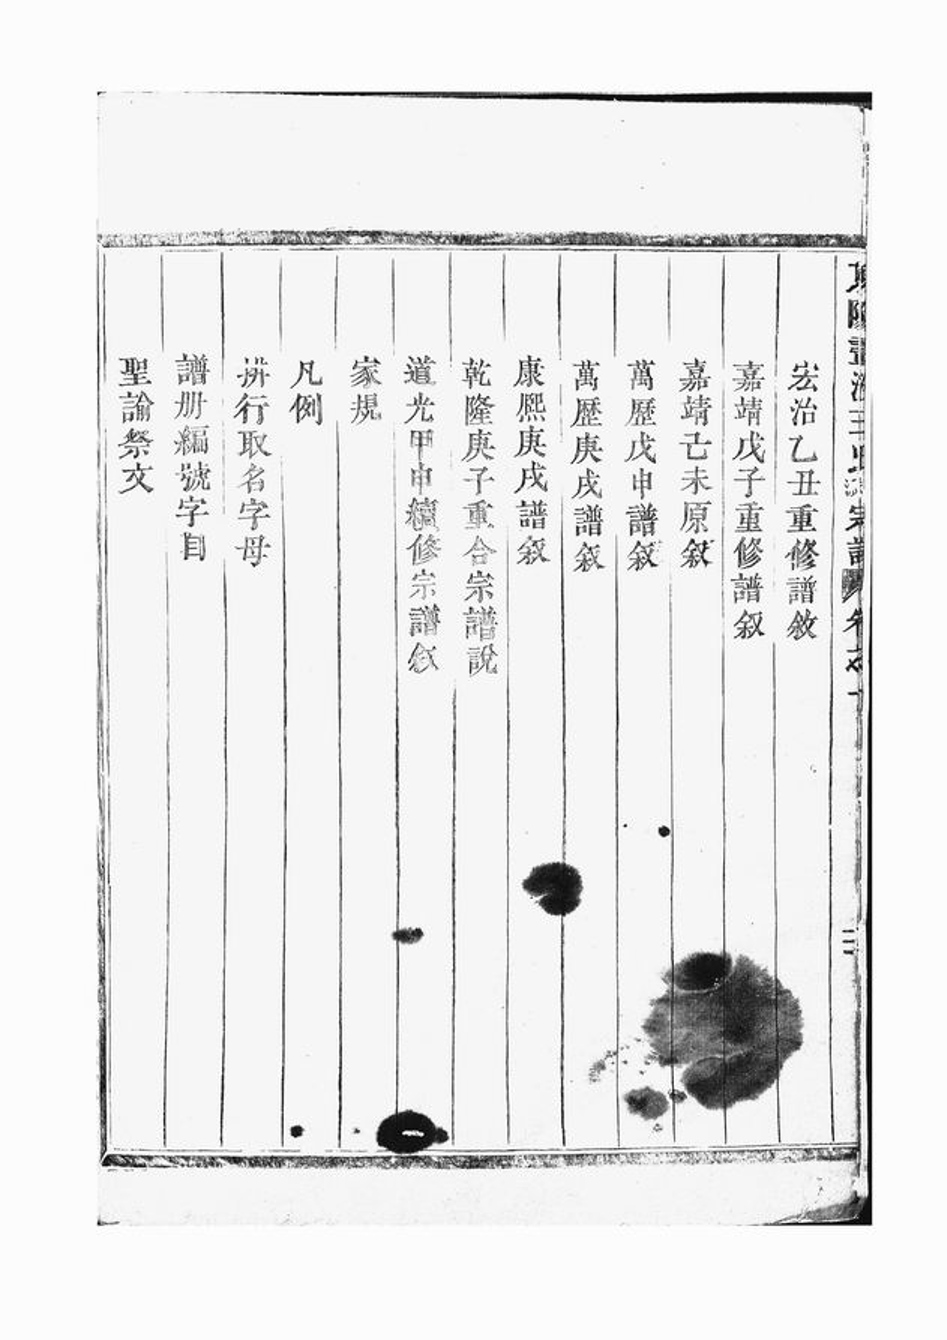 宏治乙丑重修譜敘
嘉靖戊子重修譜叙
嘉靖己未原叙
萬歷戊申譜叙
萬歷庚戌譜叙
康熙庚戌譜叙
乾隆庚子重合宗譜說
道光甲申續修宗譜叙
家規
凡例
拚行取名字母
譜册編號字目
聖諭祭文